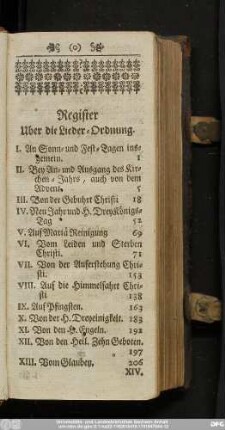 (o)
Register
Uber die Lieder-Ordnung.
I. An Sonn- und Fest-Tagen ins-
gemein. 1
II. Bey An- und Ausgang des Kir-
chen-Jahrs, auch von dem
Advent. 5
III. Von der Gebuhrt Christi 18
IV. Neu Jahr und H. Dreykönigs-
Tag 52
V. Auf Mariä Reinigung 69
VI. Vom Leiden und Sterben
Christi. 71
VII. Von der Auferstehung Chri-
sti. 153
VIII. Auf die Himmelfahrt Chri-
sti 158
IX. Auf Pfingsten. 163
X. Von der H. Dreyeinigkeit. 183
XI. Von den H. Engeln. 192
XII. Von den Heil. Zehn Geboten.
197
XIII. Vom Glauben. 206
XIV.